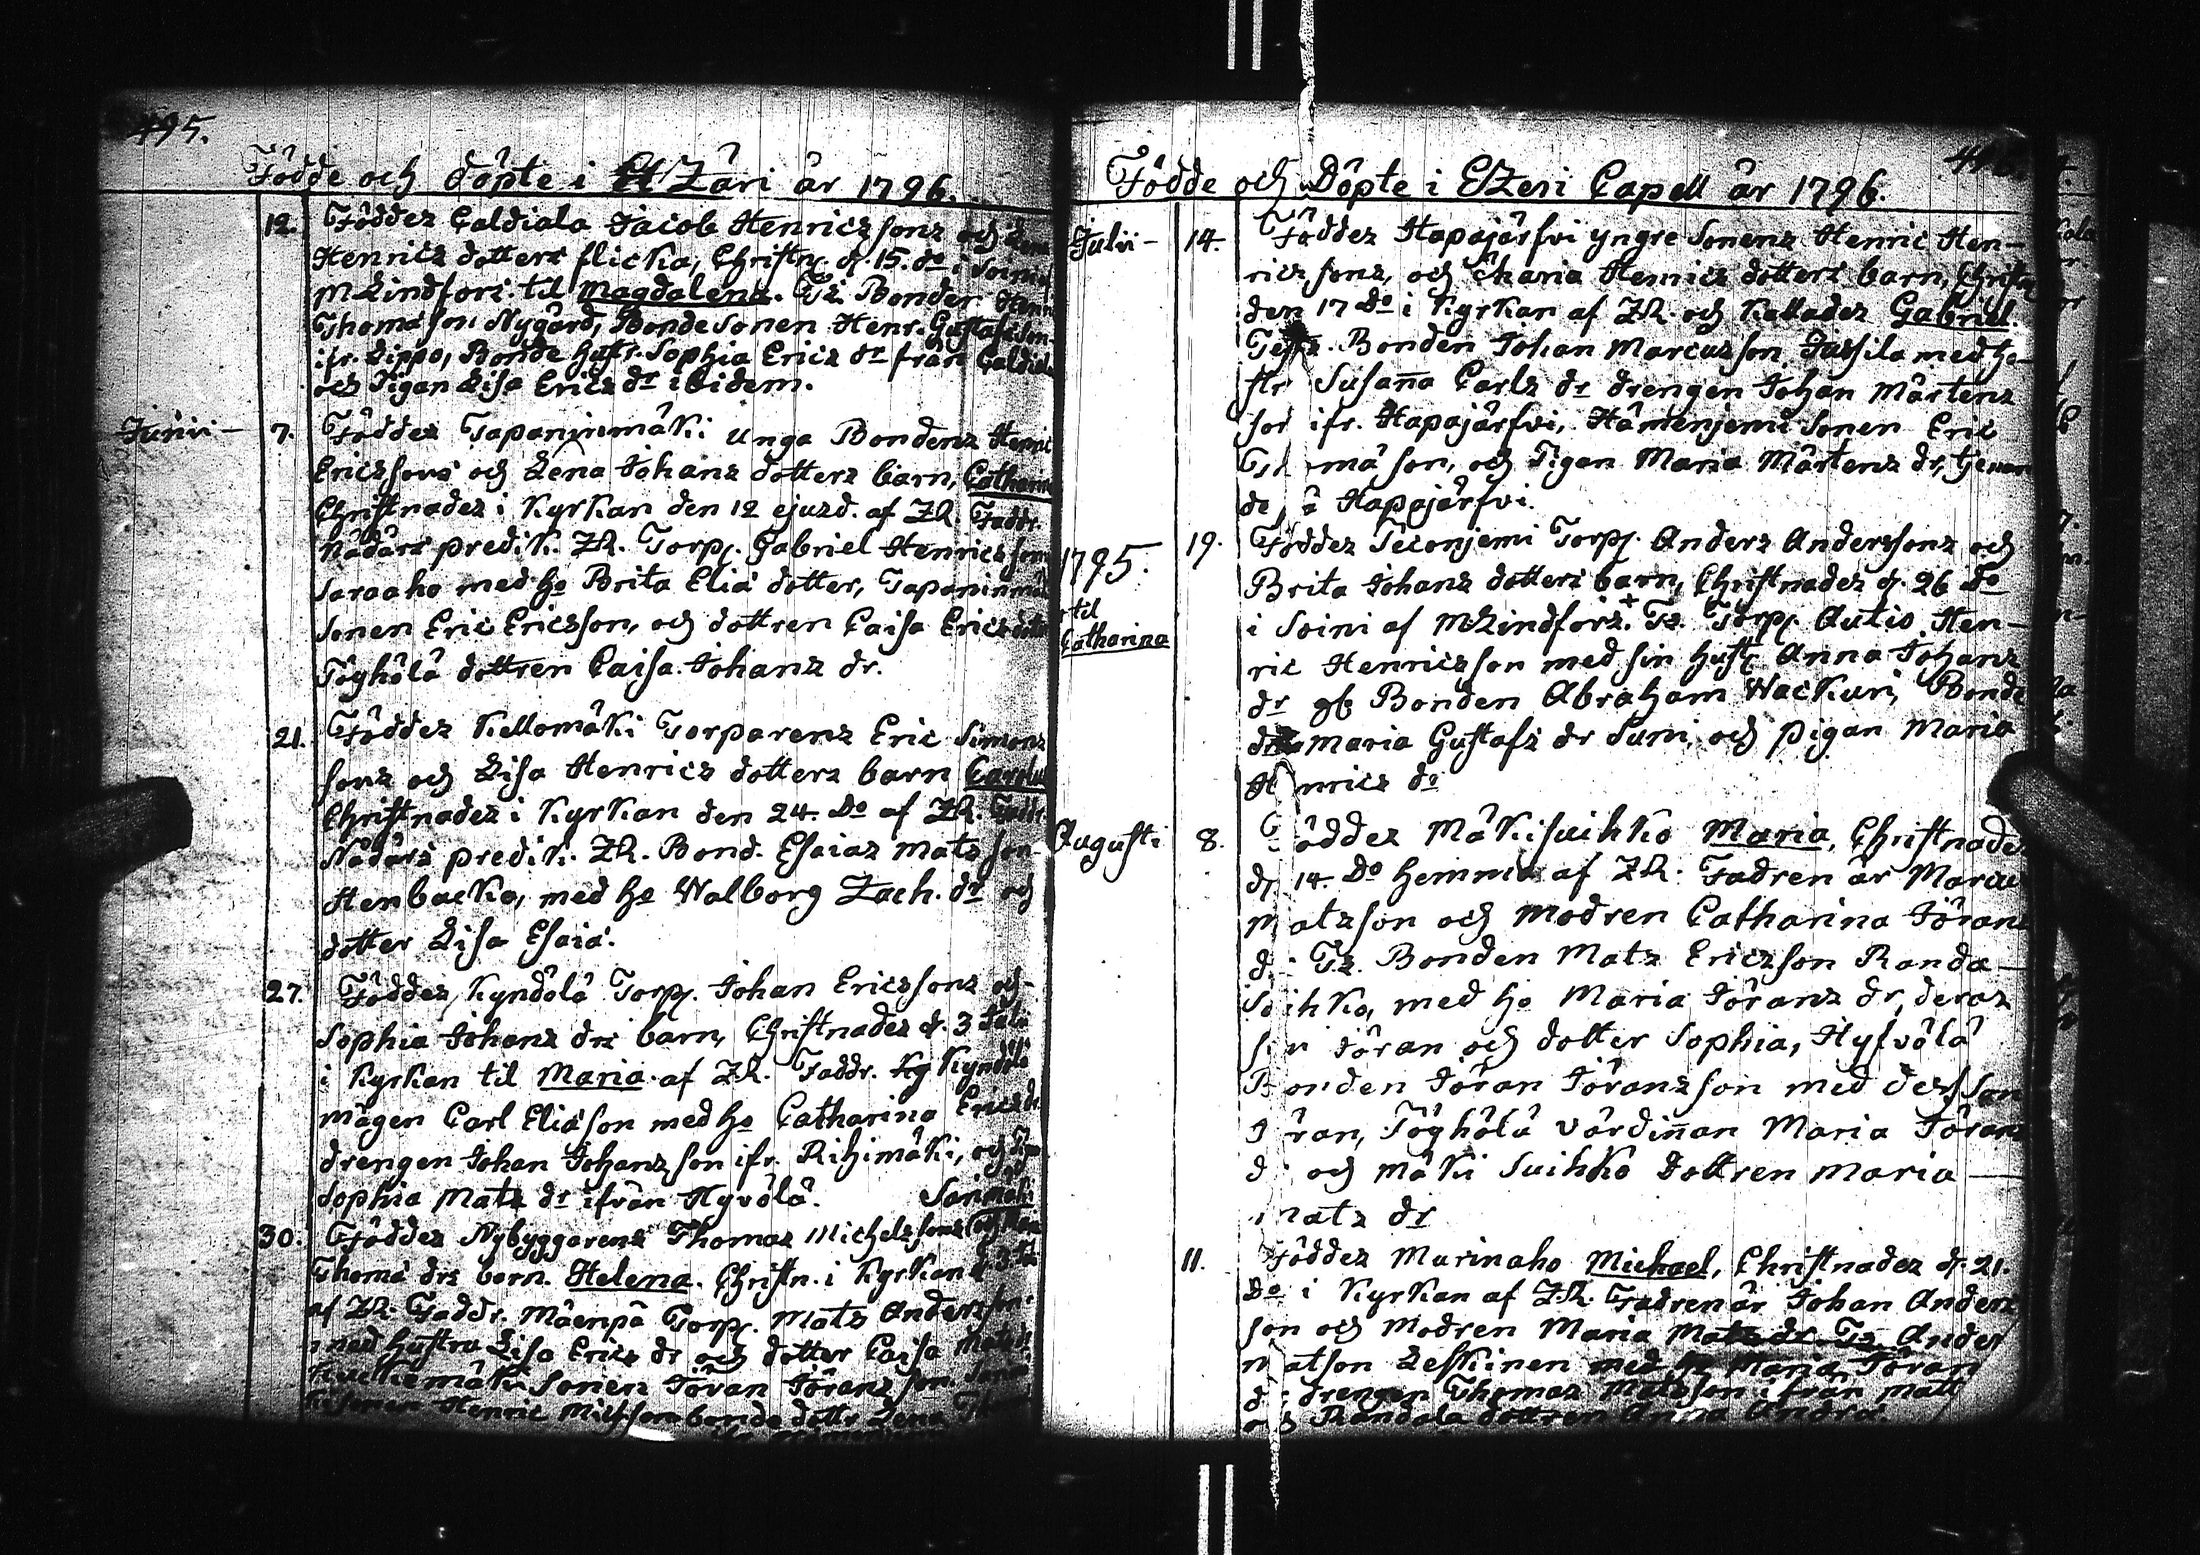 495.
Födde och döpte i EtZäri år 1796.
12. Föddes Caldiala Jacob Henricssons och Lena
Henrics dotters flicka, Christn. d. 15. do i Soini af
M Lindfors til Magdalena. Ts. Bonden Henric
Thomason Nygård, Bonde Sonen Henr. Gustafsson
ifr. Lippo, Bonde Hustr. Sophia Erics dr från Caldiala
och Pigan Lisa Erics dr ibidem.
Junii - 7. Föddes Tapaninmäki Unga Bondens Henric
Ericssons och Lena Johans dotters barn, Catharina
Christnades i Kyrkan den 12 ejusd. af ZR. Faddr.
Nådårs predik. ZR. Torp. Gabriel Henricsson
Saraaho med ho Brita Eliæ dotter, Tapaninmäki
Sonen Eric Ericsson, och dottren Caisa Erics dotter
Töyhölä dottren Caisa Johans dr.
21. Föddes Kellomäki Torparens Eric Simons
sons och Lisa Henrics dotters barn Carolus
Christnades i Kyrkan den 24. Do af ZR. Faddr.
Nådårs predik. ZR. Bond. Esaias Matsson
Stenbacka, med ho Walborg Zach. dr och
dotter Lisa Esaiæ.
27. Föddes Kyndölä Torp. Johan Ericssons och
Sophia Johans drs barn, Christnades d. 3 Julii
i Kyrkan til Maria af ZR. Faddr. Kyndölä
mågen Carl Eliæson med ho Catharina Erics dr
drengen Johan Johansson ifr. Rihimäki, och
Sophia Mats dr ifrån Hyvölä.
30. Föddes Nybyggarens Thomas Michelssons och
Thomæ drs barn. Helena. Christn. i Kyrkan d. 3
af ZR. Faddr. Mäenpä Torp. Mats Andersson
med hustru Lisa Erics dr och dotter Caisa Mats dr
sonen Jöran Jöransson
Henric bonde dottr Lena
Födde och Döpte i EtZeri Capell år 1796.
Julii - 14. Föddes Hapajärfvi yngre Sonens Henric Hen-
rics sons, och Maria Henrics dotters barn, Christn.
den 17 Do i Kyrkan af ZR. och Kallades Gabriel.
Test. Bonden Johan Marcusson Jussila med ho-
str Susanna Carls dr drengen Johan Mårtens
son ifr. Hapajärfvi, Hämenjemi Sonen Eric
Thomæson, och Pigan Maria Mårtens dr, tjenan
de på Hapajärfvi.
1795.
til
Catharina
19. Föddes Teconjemi Torp. Anders Anderssons och
Brita Johans dotters barn, Christnades d. 26 Do
i Soini af M Lindfors. + Ts. Torp. Autio Hen-
ric Henricsson med sin hustr Anna Johans
dr gb Bonden Abraham Wackuri, Bonde
Maria Gustafs dr Suni, och pigan Maria
Henrics dr
Augusti 8. Föddes Mäkisuihko Maria, Christnades
d. 14. Do hemma af ZR. Fadren är Marcus
Matsson och modren Catharina Jörans
dr Ts. Bonden Mats Ericsson Randa-
Suihko, med ho Maria Jörans dr, deras
son Jöran och dotter Sophia, Hyfvölä
Bonden Jöran Jöransson med dess Son
Jöran, Töyhölä värdinnan Maria Jörans
dr och Mäki Suihko dottren Maria -
Mats dr
11. Föddes Murinaho Michael, Christnades d. 21.
Do i Kyrkan af ZR. Fadren är Johan Anders
son och Modren Maria Mats dr Ts. Anders
Matson Leskinen med ho Maria Jörans
dr drengen Thomas Matsson ifrån
och Randala dottren Anna Andræ.